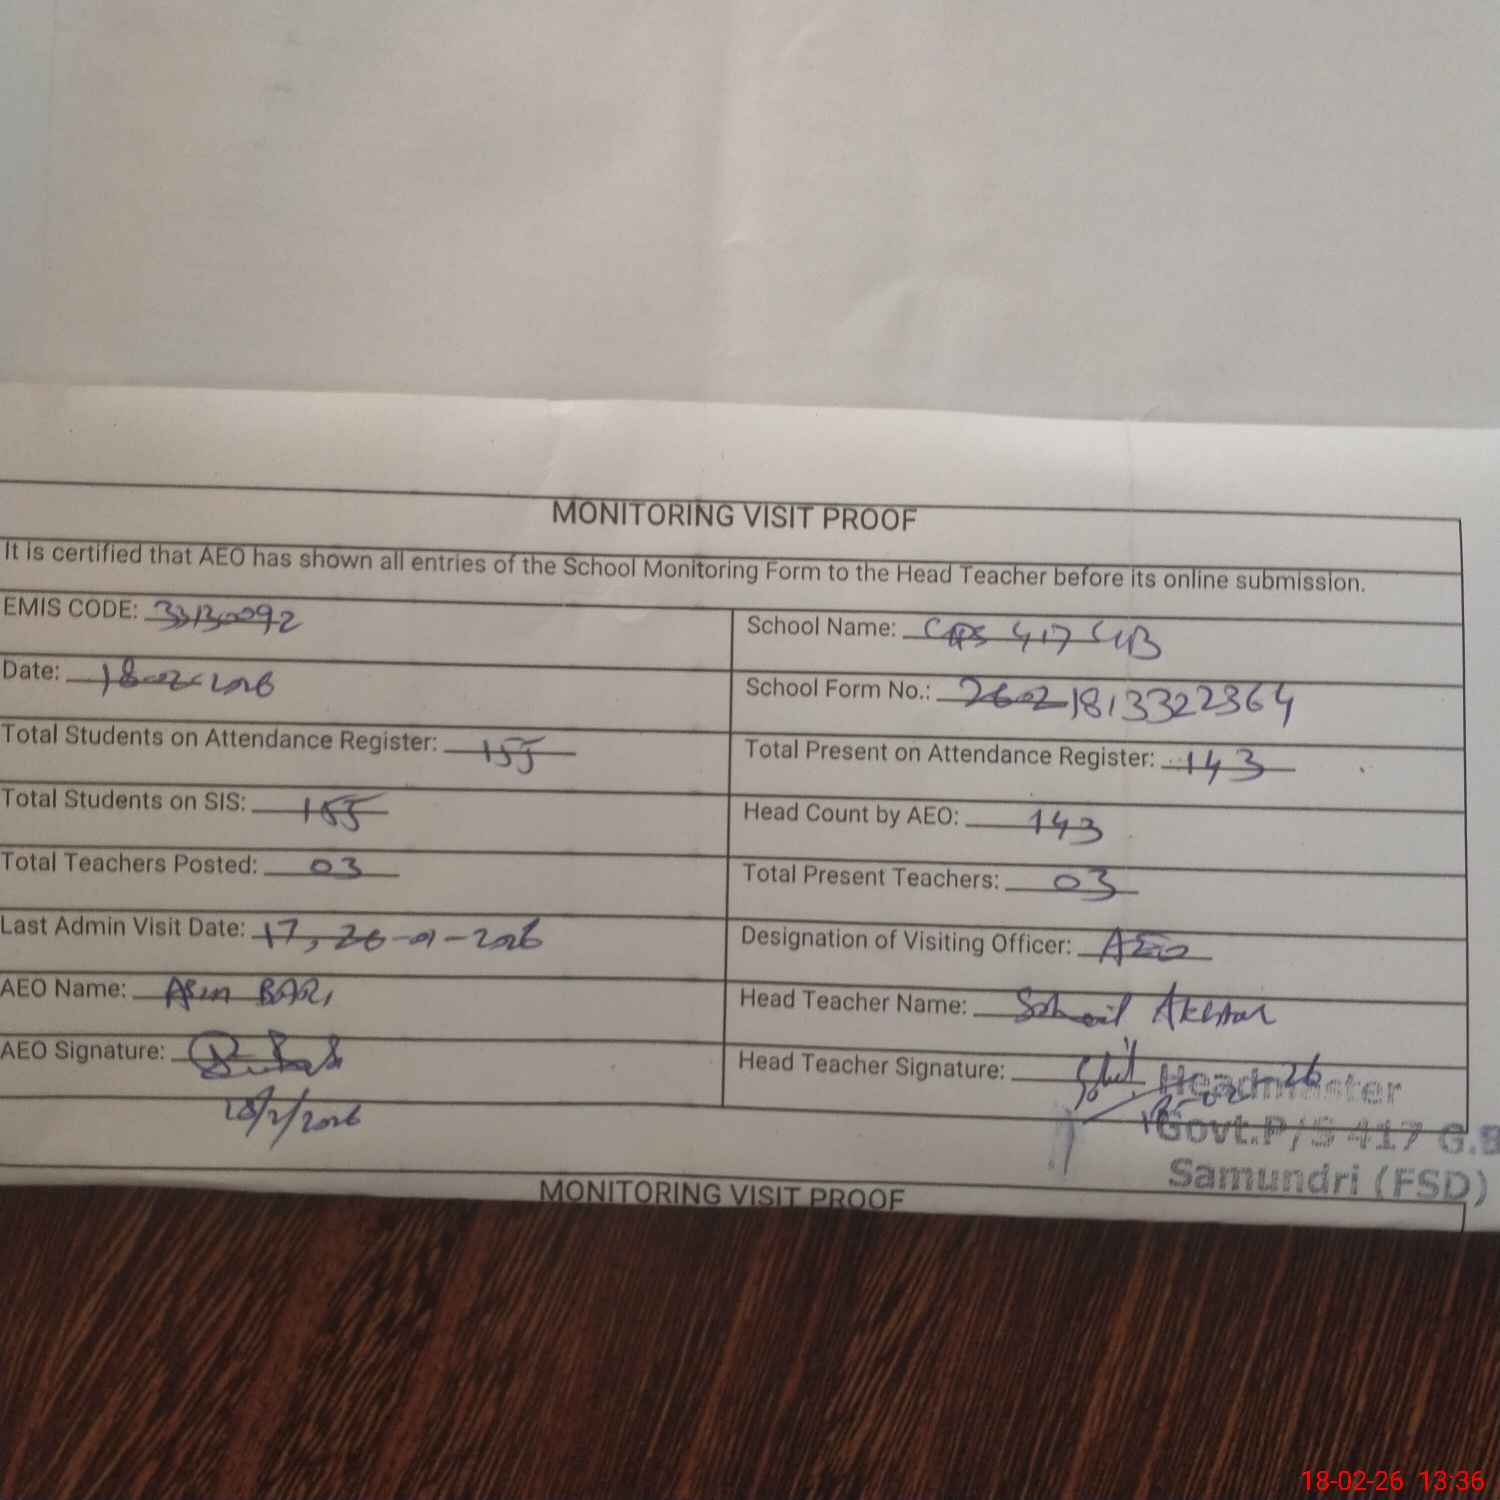 MONITORING VISIT PROOF
It is certified that AEO has shown all entries of the School Monitoring Form to the Head Teacher before its online submission.
EMIS CODE: 33130092
School Name: GPS 417 GB
Date: 18-02-2026
School Form No.: 26021813322364
Total Students on Attendance Register: 155
Total Present on Attendance Register: 143
Total Students on SIS: 155
Head Count by AEO: 143
Total Teachers Posted: 03
Total Present Teachers: 03
Last Admin Visit Date: 17, 26-01-2026
Designation of Visiting Officer: AEO
AEO Name: BARI
Head Teacher Name: Sohail Akhtar
AEO Signature:
18/2/2026
Head Teacher Signature:
Headmaster
Govt.P/S 417 G.B
Samundri (FSD)
MONITORING VISIT PROOF
18-02-26 13:36